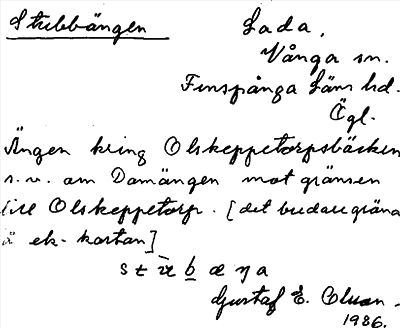 Stubbängen Lada,
Vånga sn.
Finspånga läns hd.
Ögl.
Ängen kring Olskeppetorpsbäcken
s.v. om Damängen mot gränsen
till Olskeppetorp. [det
å ek-kartan]
Gustaf E. Olson.
1936.